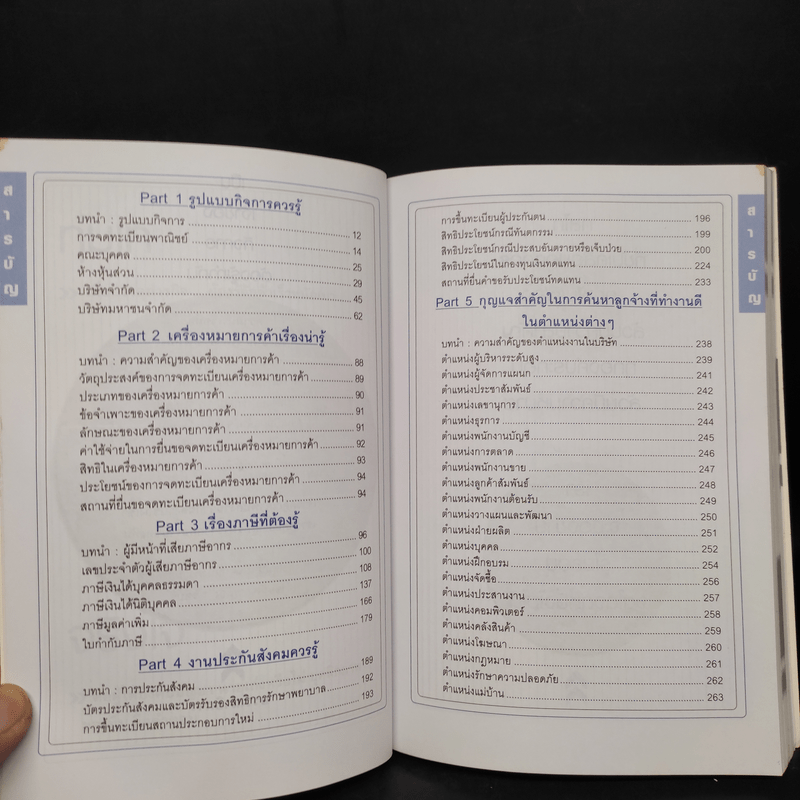 สารบัญ
Part 1 รูปแบบกิจการควรรู้
บทนำ : รูปแบบกิจการ 12
การจดทะเบียนพาณิชย์ 14
คณะบุคคล 25
ห้างหุ้นส่วน 29
บริษัทจำกัด 45
บริษัทมหาชนจำกัด 62
Part 2 เครื่องหมายการค้าเรื่องน่ารู้
บทนำ : ความสำคัญของเครื่องหมายการค้า 88
วัตถุประสงค์ของการจดทะเบียนเครื่องหมายการค้า 89
ประเภทของเครื่องหมายการค้า 90
ข้อจำเพาะของเครื่องหมายการค้า 91
ลักษณะของเครื่องหมายการค้า 91
ค่าใช้จ่ายในการยื่นขอจดทะเบียนเครื่องหมายการค้า 92
สิทธิในเครื่องหมายการค้า 93
ประโยชน์ของการจดทะเบียนเครื่องหมายการค้า 94
สถานที่ยื่นขอจดทะเบียนเครื่องหมายการค้า 94
Part 3 เรื่องภาษีที่ต้องรู้
บทนำ : ผู้มีหน้าที่เสียภาษีอากร 96
เลขประจำตัวผู้เสียภาษีอากร 100
ภาษีเงินได้บุคคลธรรมดา 108
ภาษีเงินได้นิติบุคคล 137
ภาษีมูลค่าเพิ่ม 166
ใบกำกับภาษี 179
Part 4 งานประกันสังคมควรรู้
บทนำ : การประกันสังคม 189
บัตรประกันสังคมและบัตรรับรองสิทธิการรักษาพยาบาล 192
การขึ้นทะเบียนสถานประกอบการใหม่ 193
สารบัญ
การขึ้นทะเบียนผู้ประกันตน 196
สิทธิประโยชน์กรณีทันตกรรม 199
สิทธิประโยชน์กรณีประสบอันตรายหรือเจ็บป่วย 200
สิทธิประโยชน์ในกองทุนเงินทดแทน 224
สถานที่ยื่นคำขอรับประโยชน์ทดแทน 233
Part 5 กุญแจสำคัญในการค้นหาลูกจ้างที่ทำงานดี
ในตำแหน่งต่างๆ
บทนำ : ความสำคัญของตำแหน่งงานในบริษัท 238
ตำแหน่งผู้บริหารระดับสูง 239
ตำแหน่งผู้จัดการแผนก 241
ตำแหน่งประชาสัมพันธ์ 242
ตำแหน่งเลขานุการ 243
ตำแหน่งธุรการ 244
ตำแหน่งพนักงานบัญชี 245
ตำแหน่งการตลาด 246
ตำแหน่งพนักงานขาย 247
ตำแหน่งลูกค้าสัมพันธ์ 248
ตำแหน่งพนักงานต้อนรับ 249
ตำแหน่งวางแผนและพัฒนา 250
ตำแหน่งฝ่ายผลิต 251
ตำแหน่งบุคคล 252
ตำแหน่งฝึกอบรม 254
ตำแหน่งจัดซื้อ 256
ตำแหน่งประสานงาน 257
ตำแหน่งคอมพิวเตอร์ 258
ตำแหน่งคลังสินค้า 259
ตำแหน่งโฆษณา 260
ตำแหน่งกฎหมาย 261
ตำแหน่งรักษาความปลอดภัย 262
ตำแหน่งแม่บ้าน 263